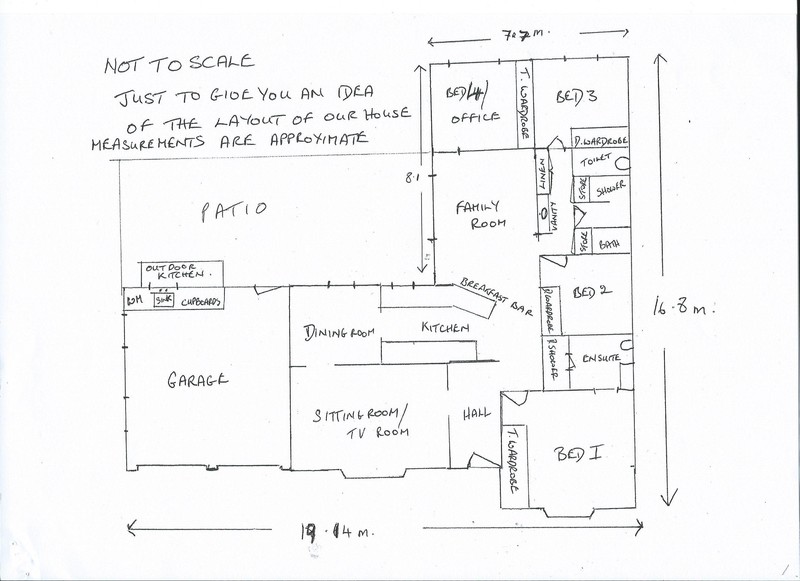 7.7 m.
NOT TO SCALE
JUST TO GIVE YOU AN IDEA
OF THE LAYOUT OF OUR HOUSE
MEASUREMENTS ARE APPROXIMATE
BED/4/
OFFICE
T. WARDROBE
BED 3
D. WARDROBE
TOILET
LINEN
8.1
PATIO
FAMILY
ROOM
VANITY
ROBE
SHOWER
ROBE
BATH
OUTDOOR
KITCHEN.
WM
SINK
CUPBOARDS
BREAKFAST BAR
D. WARDROBE
BED 2
16.8 m.
DINING ROOM
KITCHEN
D. SHOWER
ENSUITE
GARAGE
SITTING ROOM/
TV ROOM
HALL
T. WARDROBE
BED I
19.14 m.